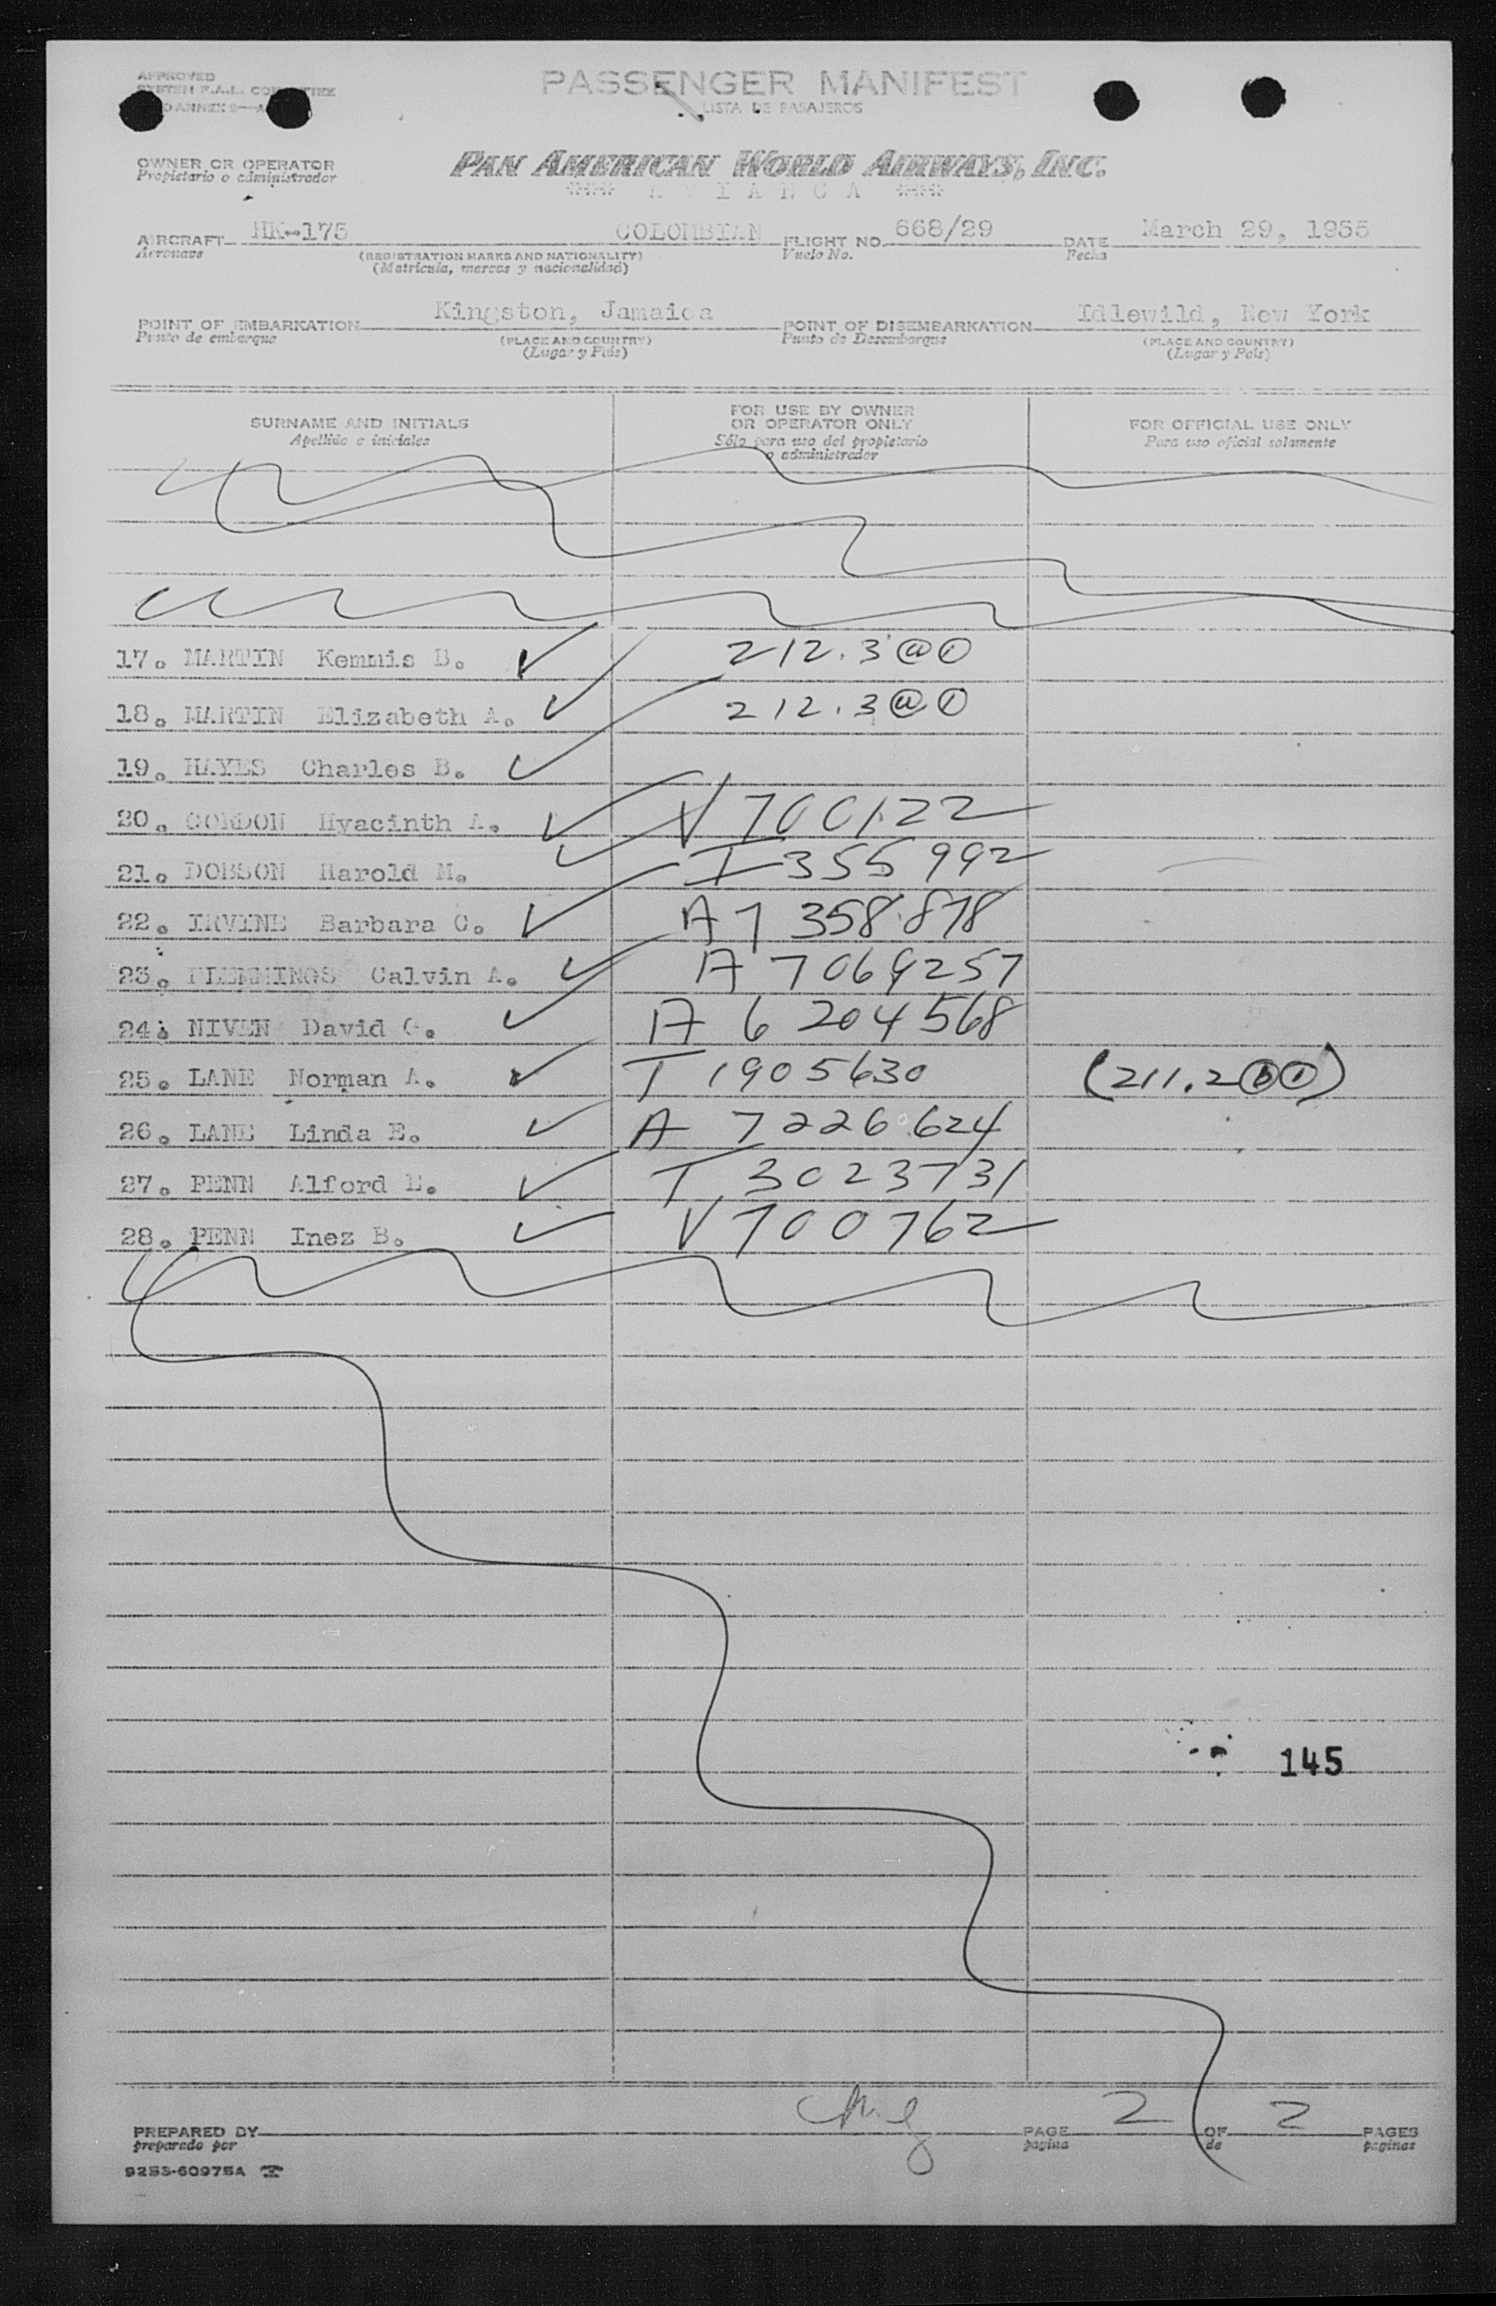 APPROVED
PASSENGER MANIFEST
SYSTEM F.A.L. COMMITTEE
LISTA DE PASAJEROS
ANNEX 9
OWNER OR OPERATOR PAN AMERICAN WORLD AIRWAYS, INC.
Propietario o administrador
*** A V I A N C A ***
AIRCRAFT HK-175 COLOMBIAN FLIGHT NO. 668/29 DATE March 29, 1955
Aeronave (REGISTRATION MARKS AND NATIONALITY) Vuelo No. Fecha
(Matrícula, marcas y nacionalidad)
POINT OF EMBARKATION Kingston, Jamaica POINT OF DISEMBARKATION Idlewild, New York
Punto de embarque (PLACE AND COUNTRY) Punto de Desembarque (PLACE AND COUNTRY)
(Lugar y País) (Lugar y País)
SURNAME AND INITIALS FOR USE BY OWNER OR OPERATOR ONLY FOR OFFICIAL USE ONLY
Apellido e iniciales Sólo para uso del propietario o administrador Para uso oficial solamente
17. MARTIN Kemmis B. 212.3 @ ①
18. MARTIN Elizabeth A. 212.3 @ ①
19. HAYES Charles B.
20. GORDON Hyacinth A. V 700122
21. DOBSON Harold M. T 355992
22. IRVINE Barbara C. A7 358 878
23. FLEMMINGS Calvin A. A 7069257
24. NIVEN David G. A 6 204 568
25. LANE Norman A. T 1905630 (211.2 ⓑ ①)
26. LANE Linda E. A 7226 624
27. PENN Alford E. T 3023731
28. PENN Inez B. V 700762
145
PREPARED BY PAGE 2 OF 2 PAGES
preparado por pagina de paginas
9253-60975A